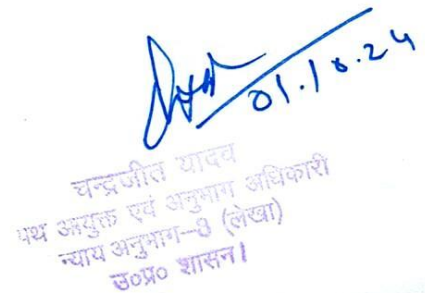 01.10.24
चन्द्रजीत यादव
पथ आयुक्त एवं अनुभाग अधिकारी
न्याय अनुभाग-8 (लेखा)
उ०प्र० शासन।